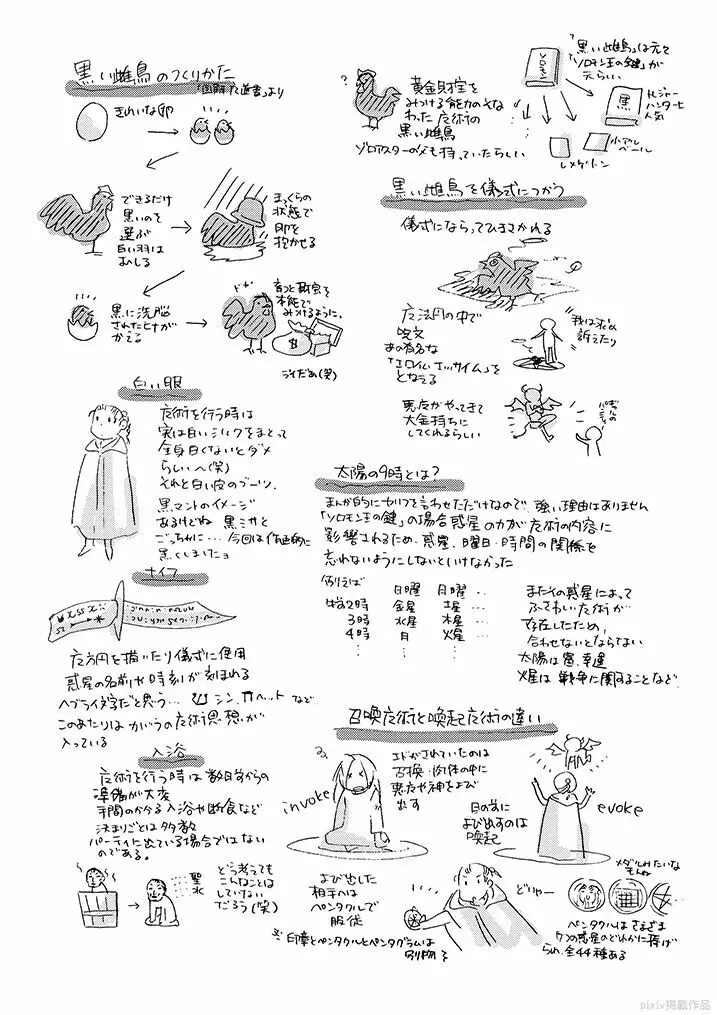 黒い雌鳥のつくりかた
きれいな卵
できるだけ
黒いのを
選ぶ
白い羽は
まっくらの
状態で
卵を
抱かせる
黒に洗脳
されたヒナが
かえる
本能で
みつけるように。
黄金財宝を
みつける能力のそな
わった魔術の
黒い雌鳥
ゾロアスターの父も持っていたらしい
「黒い雌鳥」は元で
「ソロモン王の鍵」が
元らしい
ソロモン
黒
トレジャー
ハンターに
人気
レメゲトン
黒い雌鳥を儀式につかう
儀式にならってひきさかれる
魔法円の中で
呪文
あの有名な
「エロイムエッサイム」を
となえる
我は求め
訴えたり
悪魔がやってきて
大金持ちに
してくれるらしい
白い服
魔術を行う時は
実は白いシルクをまとって
全身白くないとダメ
らしいへ(笑)
それと白い皮のブーツ。
黒マントのイメージ
あるけどね 黒ミサと
ごっちゃに…今回は作画的に
黒くしましたョ
太陽の9時とは?
まんが的にセリフを言わせただけなので、強い理由はありません
「ソロモン王の鍵」の場合惑星の力が魔術の内容に
影響されるため、惑星、曜日・時間の関係を
忘れないようにしないといけなかった
例えば
日曜 月曜 …
2時 金星 土星 …
3時 水星 木星 …
4時 月 火星 …
またその惑星によって
ふさわしい魔術が
存在したため、
合わせないとならない
太陽は富、幸運
火星は戦争に関することなど
ナイフ
魔方円を描いたり儀式に使用
惑星の名前や時刻が刻まれる
ヘブライ文字だと思う… シン、ヘットなど
このあたりはカバラの魔術思想が
入っている
入浴
魔術を行う時は数日前からの
準備が大変
手間のかかる入浴や断食など
決まりごとは多数
パーティに出ている場合ではない
のである。
聖水
どう考えても
こんなことは
していない
だろう(笑)
召喚魔術と喚起魔術の違い
invoke
エドがされていたのは
召喚・肉体の中に
悪魔や神をよび
出す
目の前に
よび出すのは
喚起
evoke
よび出した
相手へは
ペンタクルで
服従
※印章とペンタクルとペンタグラムは
別物
どりゃー
メダルみたいな
もんね
ペンタクルはさまざま
7つの惑星のどれかに捧げ
られ、全44種ある
pixiv掲載作品